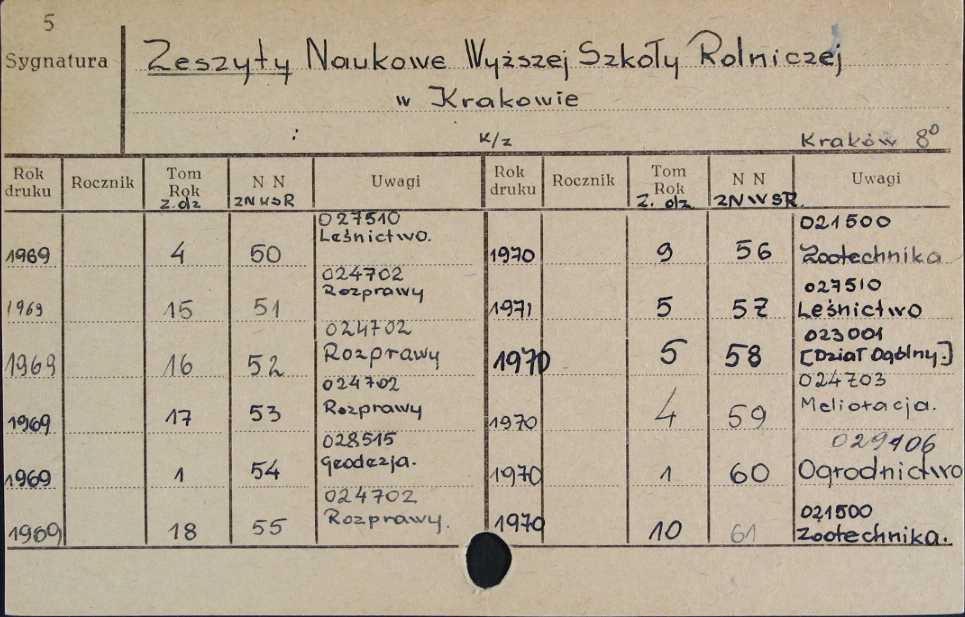 5
Sygnatura
Zeszyty Naukowe Wyższej Szkoły Rolniczej
w Krakowie
: K/z Kraków 8°
Rok druku Rocznik Tom Rok Z. dz N N ZNWSR Uwagi Rok druku Rocznik Tom Rok Z. dz N N ZNWSR. Uwagi
1969 4 50 027510 Leśnictwo. 1970 9 56 021500 Zootechnika
1969 15 51 024702 Rozprawy 1971 5 57 027510 Leśnictwo
1969 16 52 024702 Rozprawy 1970 5 58 023001 [Dział Ogólny.]
1969 17 53 024702 Rozprawy 1970 4 59 024703 Melioracja.
1969 1 54 028515 Geodezja. 1970 1 60 029106 Ogrodnictwo
1969 18 55 024702 Rozprawy. 1970 10 61 021500 Zootechnika.